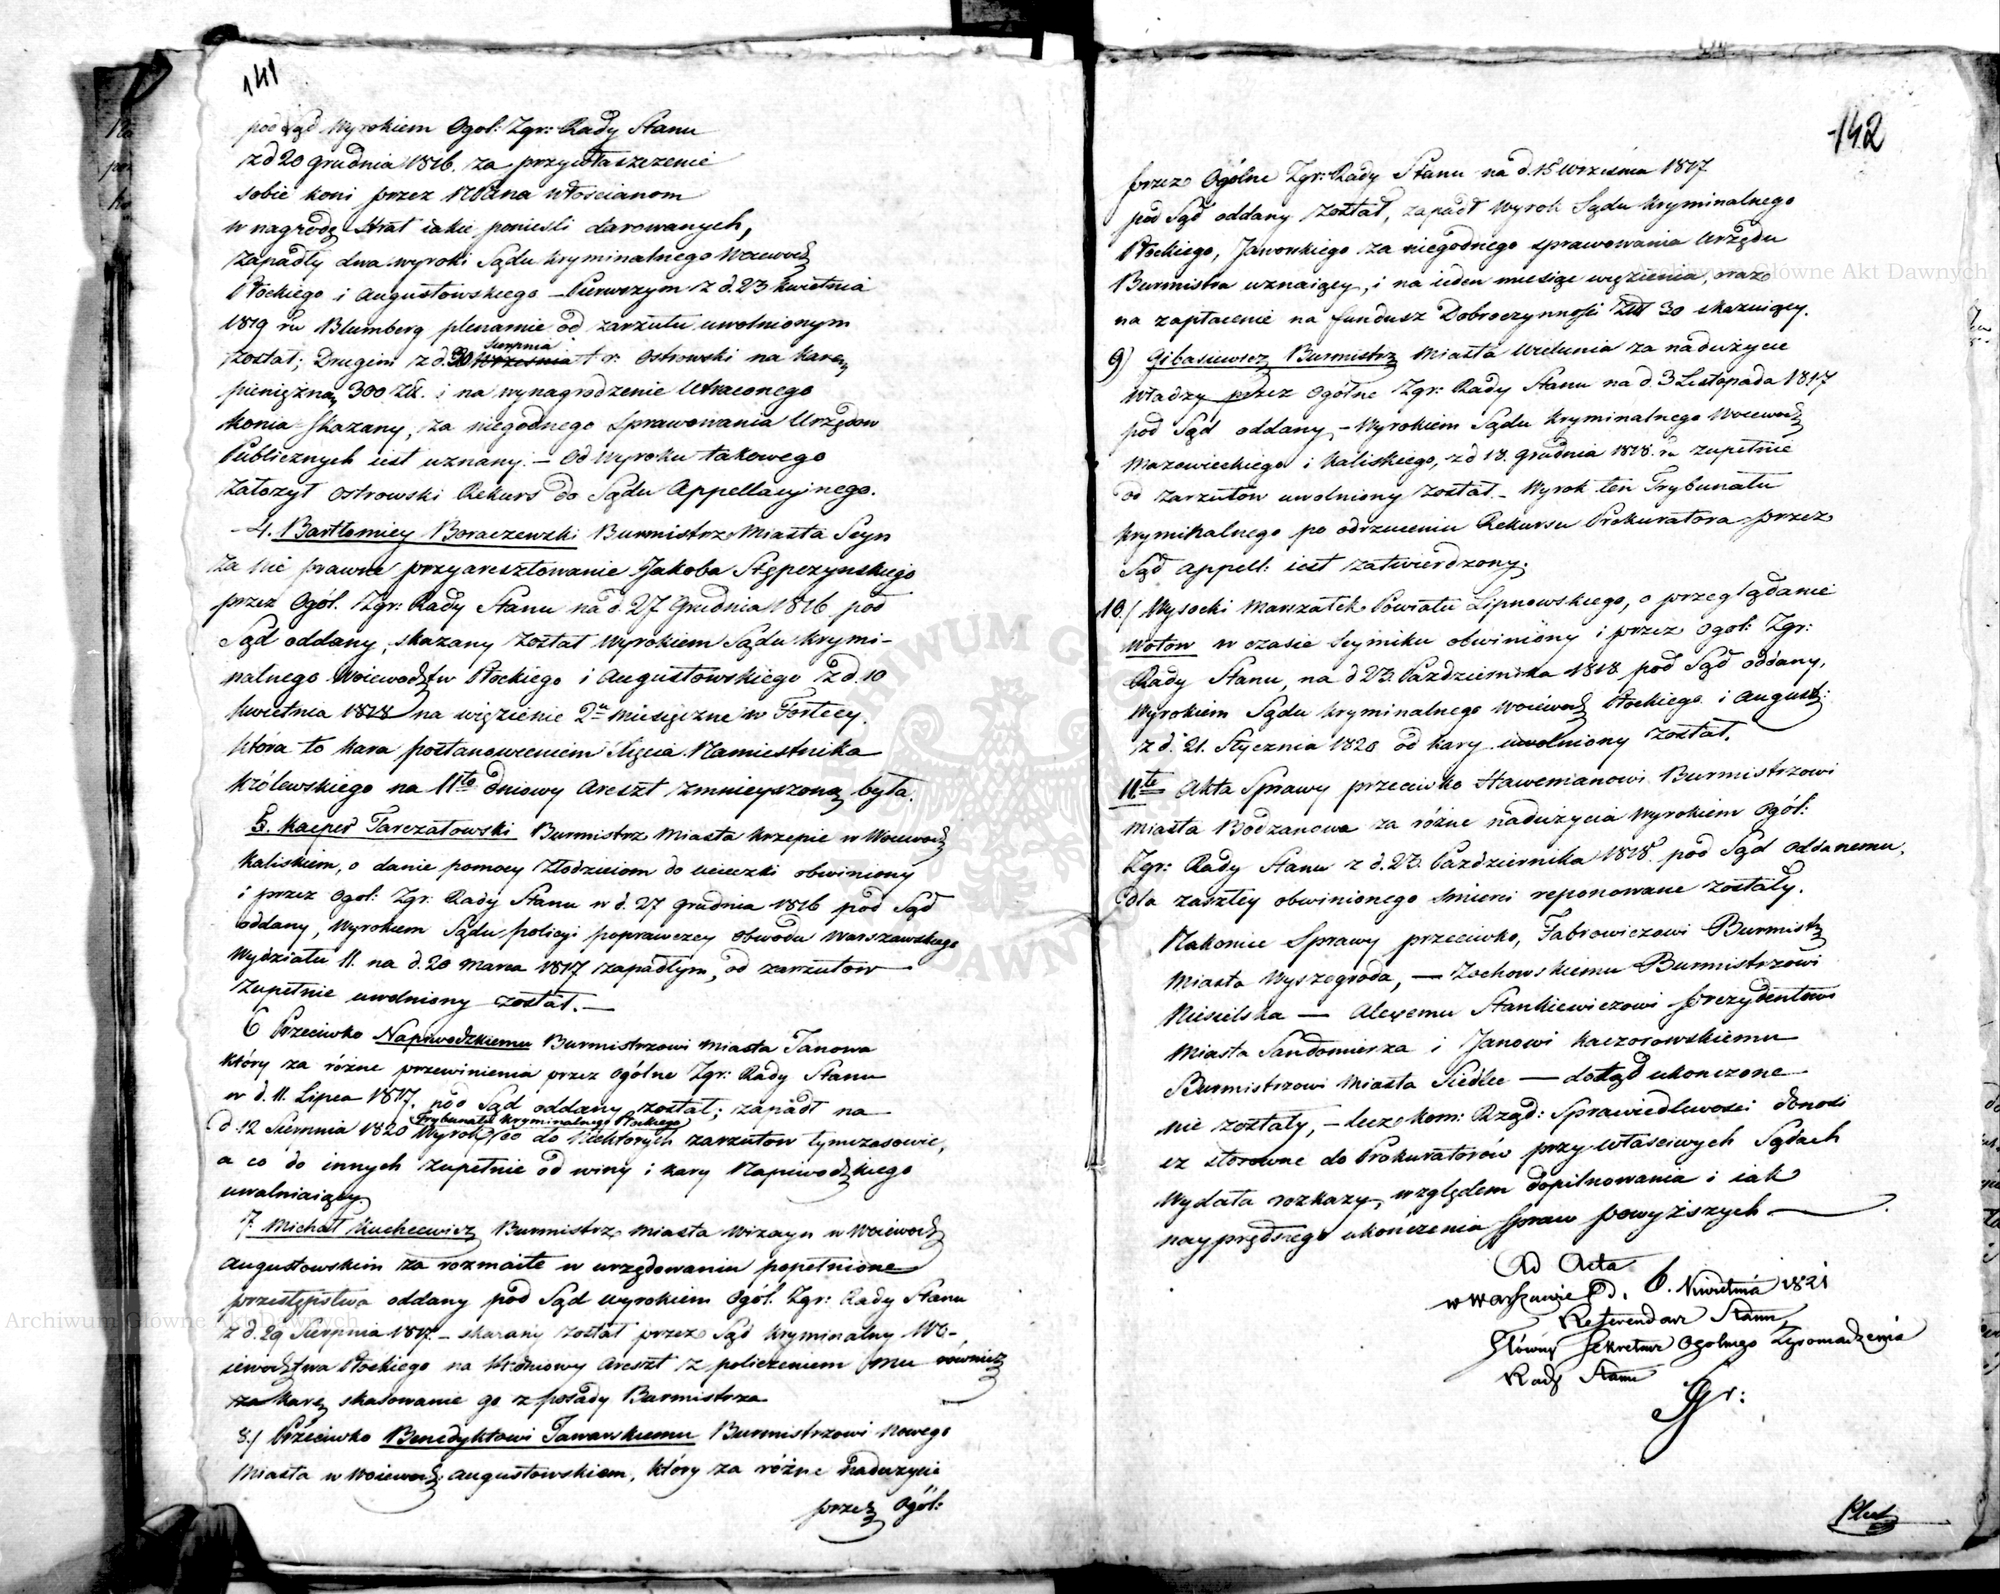 141
pod Sąd Wyrokiem Ogol: Zgr: Rady Stanu
z d 20 grudnia 1816. za przywłaszczenie
sobie koni przez włościanom
w nagrodę strat iakie ponieśli darowanych,
zapadły dwa wyroki Sądu kryminalnego Woiewodz
Płockiego i Augustowskiego – Pierwszym z d. 23 kwietnia
1819 ru Blumberg plenarnie od zarzutu uwolnionym
został; Drugim z d. 30 Sierpnia t. r. Ostrowski na karę
pieniężną 300 Złł. i na wynagrodzenie utraconego
konia skazany, za niegodnego sprawowania Urzędow
Publicznych iest uznany. – Od wyroku takowego
założył Ostrowski Rekurs do Sądu Appellacyinego.
– 4. Bartłomiey Boraczewski Burmistrz Miasta Seyn
za nie prawne przyaresztowanie Jakoba Stępczynskiego
przez Ogól. Zgr: Rady Stanu na d. 27 Grudnia 1816 pod
Sąd oddany, skazany został Wyrokiem Sądu krymi-
nalnego Woiewodztw Płockiego i Augustowskiego z d. 10
kwietnia 1818 na więzienie 2u Miesięczne w Fortecy.
która to kara postanowieniem Xięcia Namiestnika
królewskiego na 11to dniowy Areszt zmnieyszoną była.
5. Kacper Tarczałowski Burmistrz Miasta Krzepic w Woiewodz
Kaliskiem, o danie pomocy złodzieiom do ucieczki obwiniony
i przez Ogol: Zgr: Rady Stanu w d. 27 grudnia 1816 pod Sąd
oddany, wyrokiem Sądu policyi poprawczey Obwodu Warszawskiego
Wydziału II. na d. 20 Marca 1817 zapadłym, od zarzutow
zupełnie uwolniony został. –
6 Przeciwko Napiwodzkiemu Burmistrzowi Miasta Janowa
który za różne przewinienia przez Ogólne Zgr: Rady Stanu
w d. 11. Lipca 1817. pod Sąd oddany został; zapadł na
d. 12 Sierpnia 1820 Wyrok Trybunału Kryminalnego Płockiego co do niektorych zarzutow tymczasowie,
a co do innych zupełnie od winy i kary Napiwodzkiego
uwalniaiący.
7. Michał Kucheewicz Burmistrz Miasta Wizayn w Woiewodz
Augustowskim za rozmaite w urzędowaniu popełnione
przestępstwa oddany pod Sąd wyrokiem Ogól. Zgr: Rady Stanu
z d. 29 Sierpnia 1817. – skazany został przez Sąd kryminalny Wo-
iewodztwa Płockiego na dniowy Areszt z policzeniem mu również
za karę skasowanie go z posady Burmistrza
8./ Przeciwko Benedyktowi Jaworskiemu Burmistrzowi Nowego
Miasta w Woiewodz: Augustowskiem, który za różne nadużycie
przez Ogól:
142
przez Ogólne Zgr: Rady Stanu na d. 15 Września 1817
pod Sąd oddany został, zapadł wyrok Sądu kryminalnego
Płockiego, Jaworskiego za niegodnego sprawowania Urzędu
Burmistra uznaiący, i na ieden miesiąc więzienia, oraz
na zapłacenie na fundusz Dobroczynności Złł 30 skazuiący.
9) Gibasiewicz Burmistrz Miasta Wielunia za nadużycie
władzy przez Ogólne Zgr: Rady Stanu na d. 3 Listopada 1817
pod Sąd oddany – Wyrokiem Sądu kryminalnego Woiewodz
Mazowieckiego i Kaliskiego, z d 18. grudnia 1818. ru zupełnie
od zarzutow uwolniony został. – Wyrok ten Trybunału
kryminalnego po odrzuceniu Rekursu Prokuratora przez
Sąd Appell: iest zatwierdzony.
10./ Wysocki Marszałek Powiatu Lipnowskiego, o przeglądanie
wotow w czasie Seymiku obwiniony i przez Ogol: Zgr:
Rady Stanu, na d 23. Pazdziernika 1818 pod Sąd oddany,
Wyrokiem Sądu kryminalnego Woiewodz Płockiego i August:
z d. 21. Stycznia 1820 od kary uwolniony został.
11.te Akta Sprawy przeciwko Burmistrzowi
Miasta Bodzanowa za różne nadużycia wyrokiem Ogól:
Zgr: Rady Stanu z d. 23. Pazdziernika 1818 pod Sąd oddanemu,
dla zaszłey obwinionego śmierci reponowane zostały.
Nakoniec Sprawy przeciwko, Fabrowiczowi Burmistrz
Miasta Wyszogroda, – Zochowskiemu Burmistrzowi
Nieszielska – Alexemu Stankiewiczowi prezydentowi
Miasta Sandomierza i Janowi Kaczorowskiemu
Burmistrzowi Miasta Siedlec – dotąd ukonczone
nie zostały, – lecz kom: Rząd: Sprawiedliwości donosi
iż stosowne do Prokuratorów przy właściwych Sądach
wydała rozkazy, względem dopilnowania i iak
nayprędszego ukończenia Spraw powyższych –
Ad Acta
w Warszawie d. 6. Kwietnia 1821
Referendarz Stanu,
Główny Sekretarz Ogolnego Zgromadzenia
Rady Stanu
Archiwum Główne Akt Dawnych
Archiwum Główne Akt Dawnych